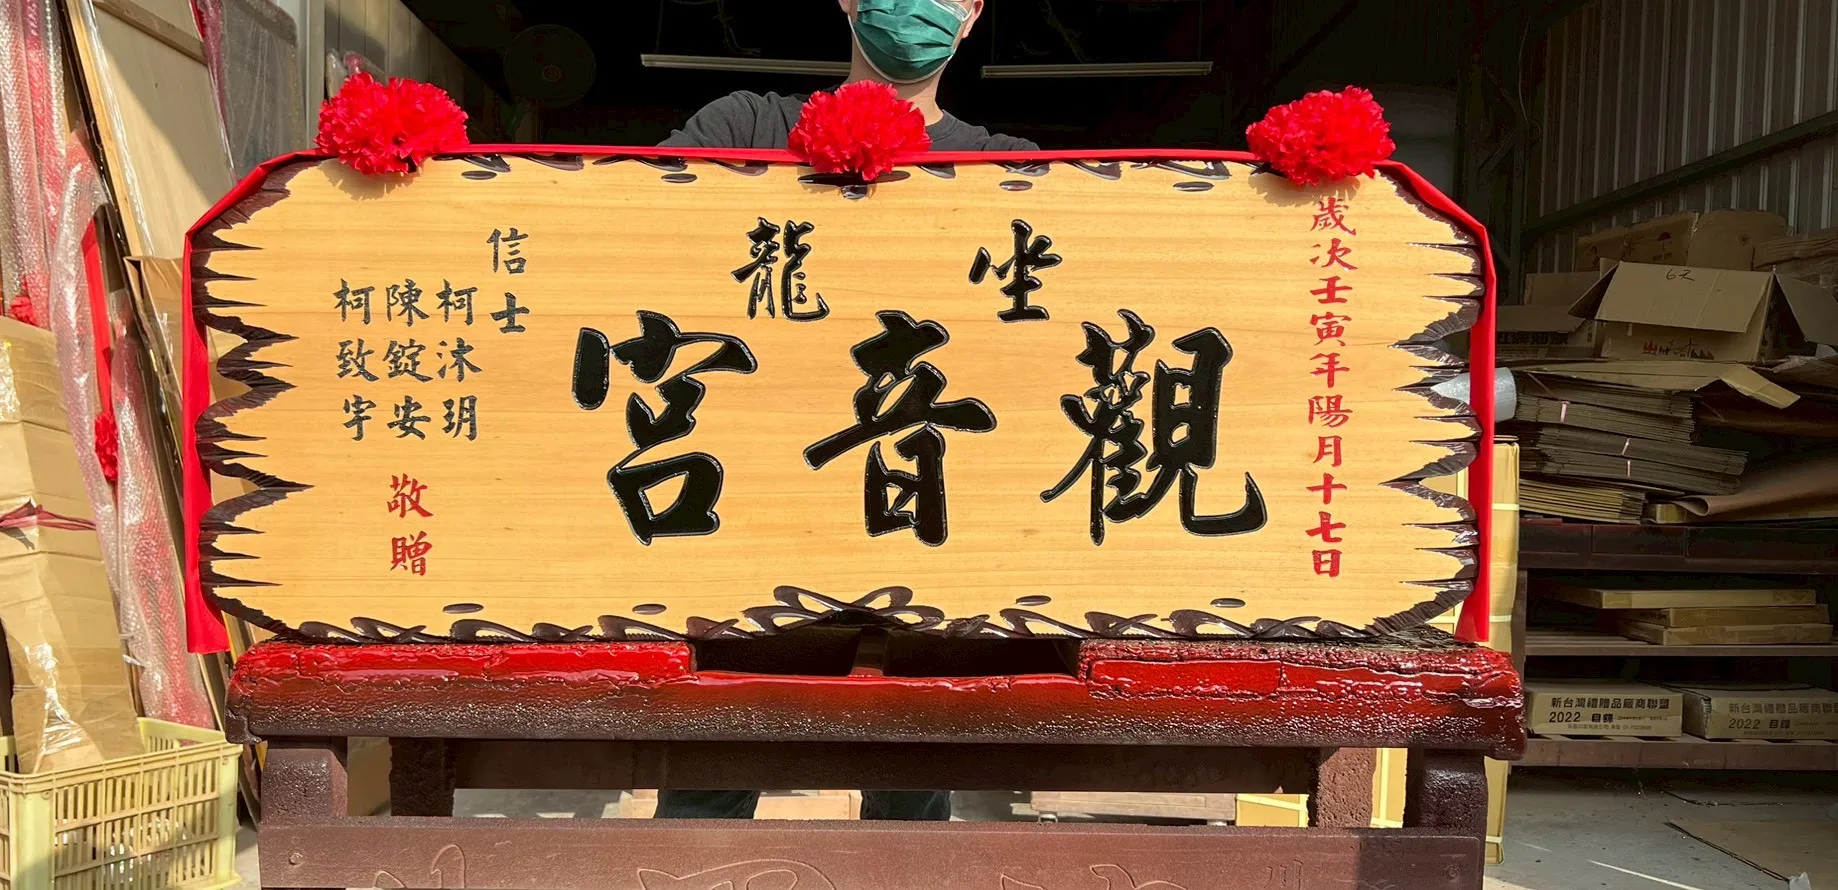 歲次壬寅年陽月十七日
坐龍
觀音宮
信士
柯沐玥
陳錠安
柯致宇
敬贈
62
新台灣禮贈品廠商聯盟
2022 目錄
新台灣禮贈品廠商聯盟
2022 目錄